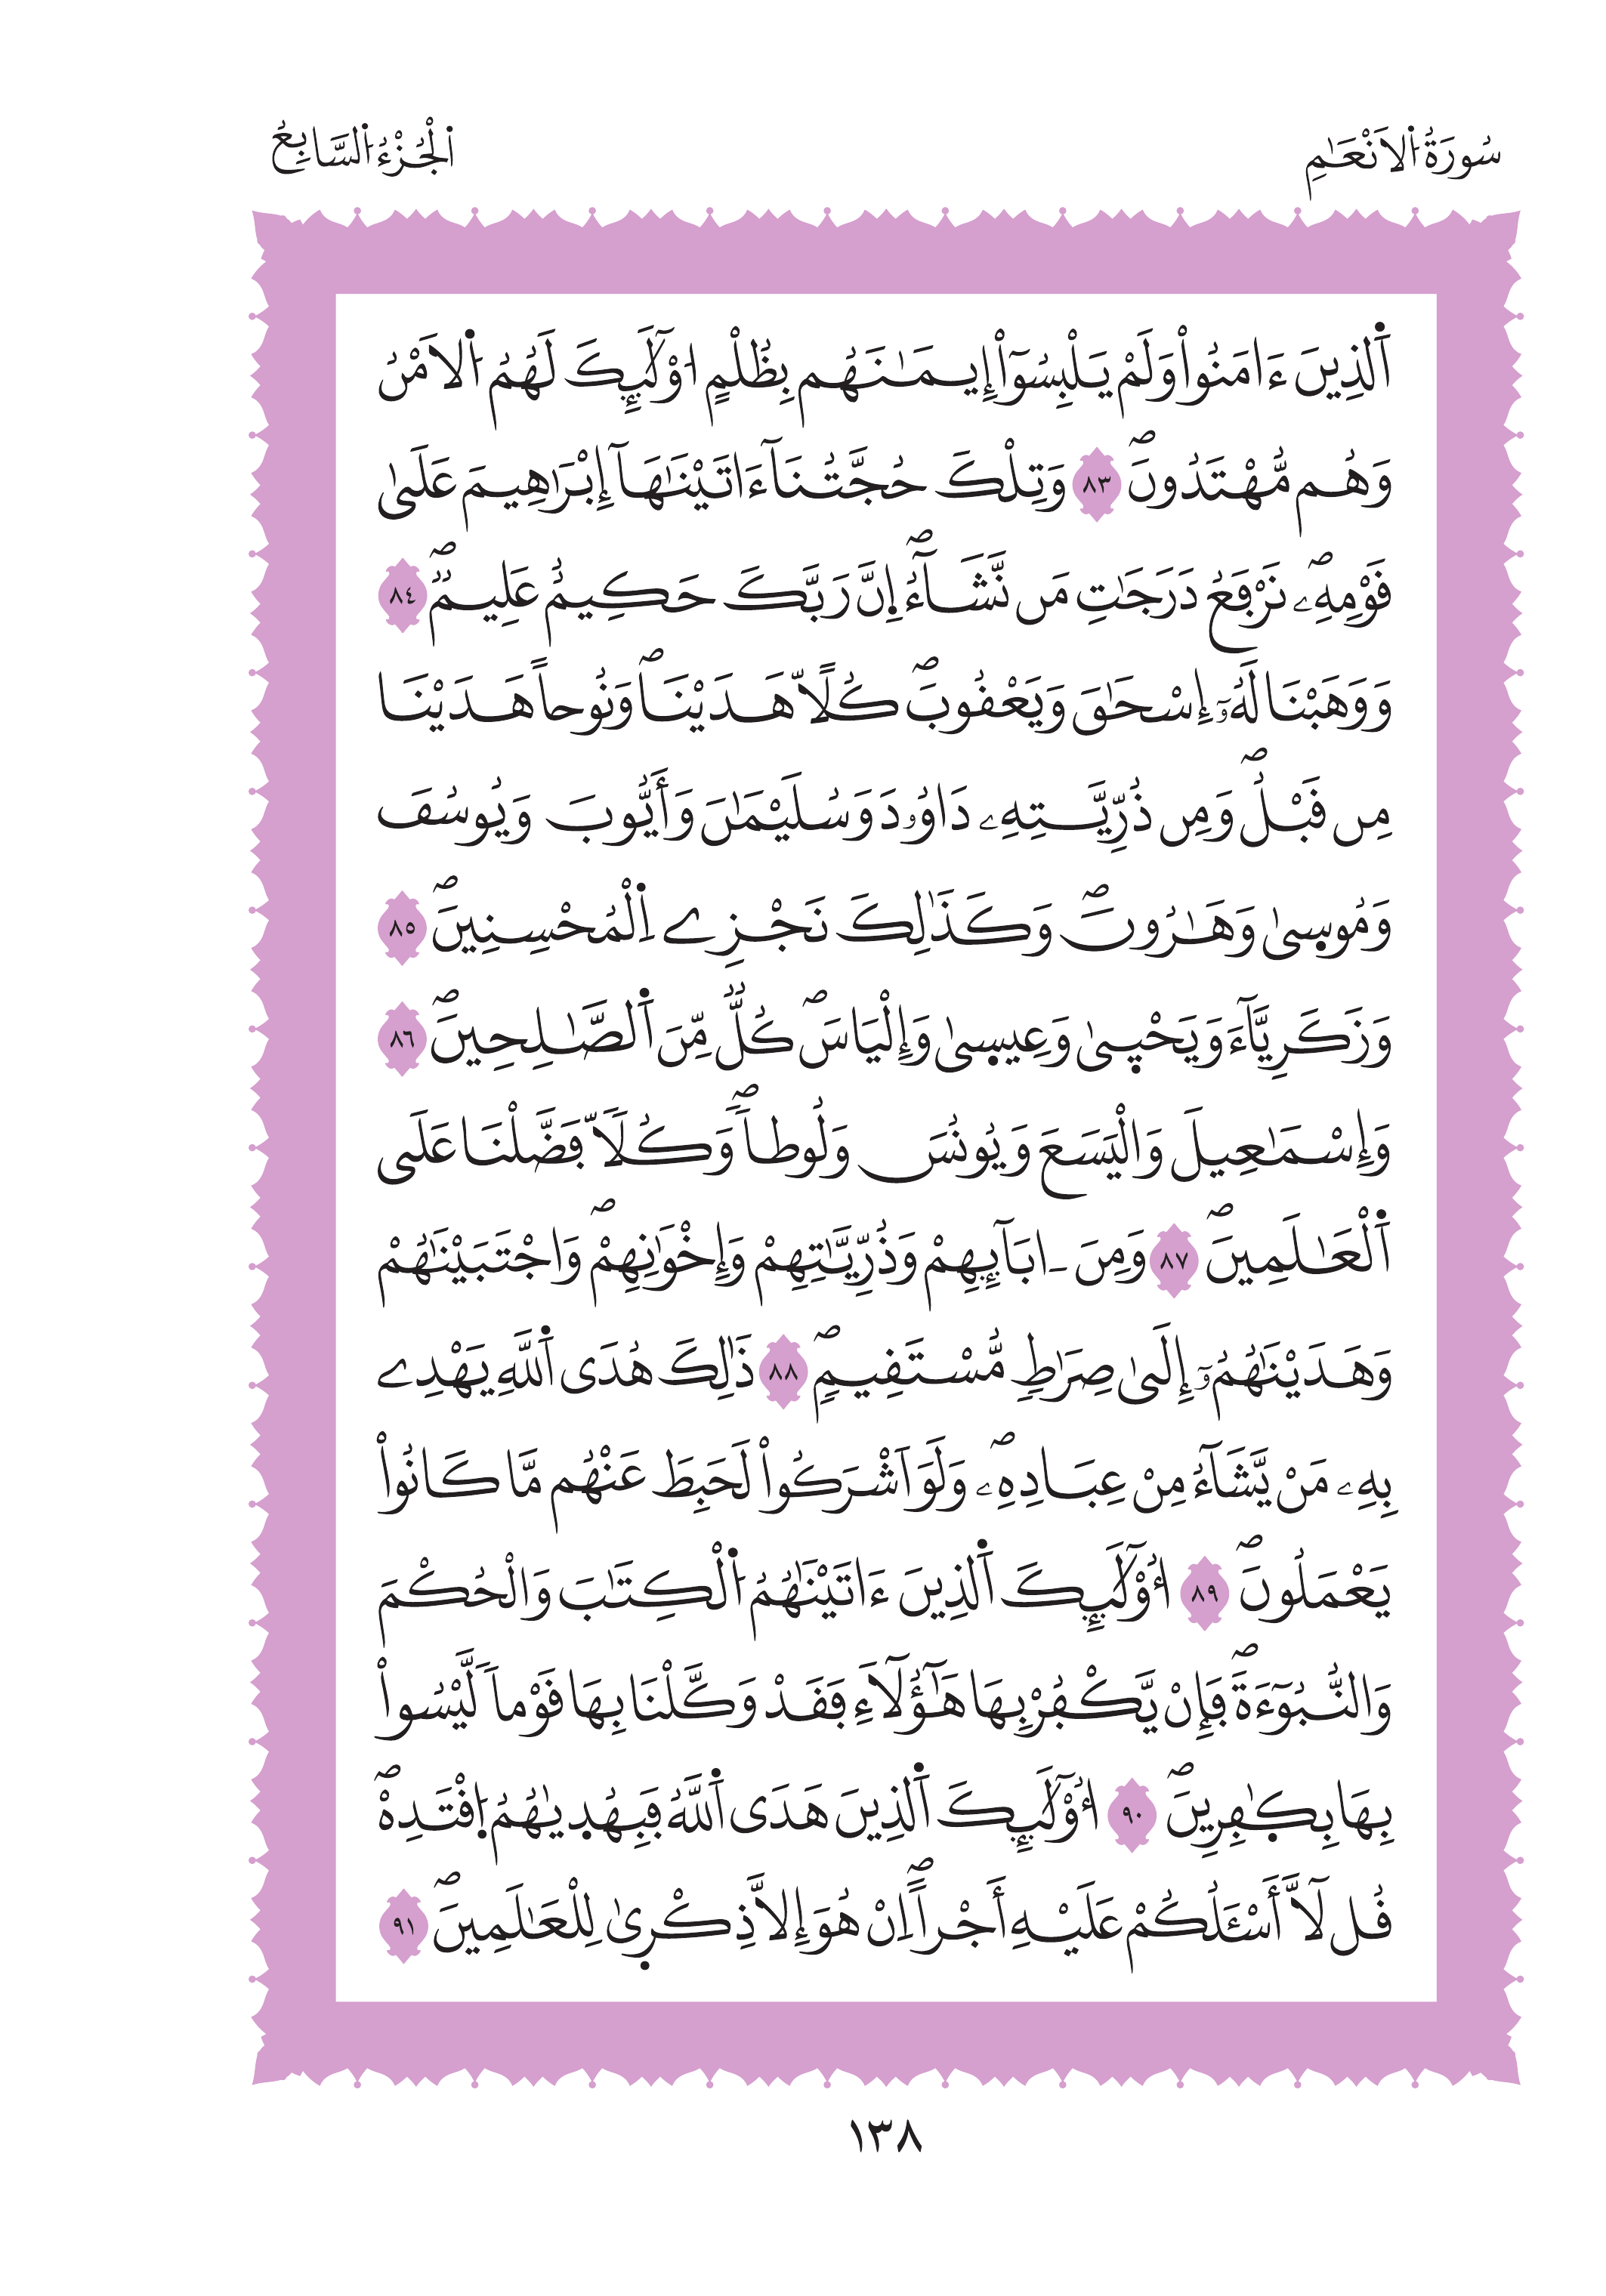 سُورَةُ اُ۬لَانْعَٰمِ
اَ۬لْجُزْءُ اُ۬لسَّابِعُ
اَ۬لذِينَ ءَامَنُواْ وَلَمْ يَلْبِسُوٓاْ إِيمَٰنَهُم بِظُلْمٍ ا۟وْلَٰٓئِكَ لَهُمُ اُ۬لَامْنُ
وَهُم مُّهْتَدُونَۖ ٨٣ وَتِلْكَ حُجَّتُنَآ ءَاتَيْنَٰهَآ إِبْرَٰهِيمَ عَلَيٰ
قَوْمِهِۦۖ نَرْفَعُ دَرَجَٰتِ مَن نَّشَآءُۖ اِ۪نَّ رَبَّكَ حَكِيمٌ عَلِيمٞۖ ٨٤
وَوَهَبْنَا لَهُۥٓ إِسْحَٰقَ وَيَعْقُوبَۖ كُلّاً هَدَيْنَاۖ وَنُوحاً هَدَيْنَا
مِن قَبْلُۖ وَمِن ذُرِّيَّتِهِۦ دَاوُۥدَ وَسُلَيْمَٰنَ وَأَيُّوبَ وَيُوسُفَ
وَمُوس۪يٰ وَهَٰرُونَۖ وَكَذَٰلِكَ نَجْزِے اِ۬لْمُحْسِنِينَۖ ٨٥
وَزَكَرِيَّآءَ وَيَحْي۪يٰ وَعِيس۪يٰ وَإِلْيَاسَۖ كُلّٞ مِّنَ اَ۬لصَّٰلِحِينَۖ ٨٦
وَإِسْمَٰعِيلَ وَالْيَسَعَ وَيُونُسَ وَلُوطاٗۖ وَكُلّاٗ فَضَّلْنَا عَلَي
اَ۬لْعَٰلَمِينَۖ ٨٧ وَمِنَ ـ ابَآئِهِمْ وَذُرِّيَّٰتِهِمْ وَإِخْوَٰنِهِمْۖ وَاجْتَبَيْنَٰهُمْ
وَهَدَيْنَٰهُمُۥٓ إِلَيٰ صِرَٰطٍ مُّسْتَقِيمٍۖ ٨٨ ذَٰلِكَ هُدَي اَ۬للَّهِ يَهْدِے
بِهِۦ مَنْ يَّشَآءُ مِنْ عِبَادِهِۦۖ وَلَوَ اَشْرَكُواْ لَحَبِطَ عَنْهُم مَّا كَانُواْ
يَعْمَلُونَۖ ٨٩ أُوْلَٰٓئِكَ اَ۬لذِينَ ءَاتَيْنَٰهُمُ اُ۬لْكِتَٰبَ وَالْحُكْمَ
وَالنُّبُوٓءَةَۖ فَإِنْ يَّكْفُرْ بِهَا هَٰٓؤُلَآءِ فَقَدْ وَكَّلْنَا بِهَا قَوْماٗ لَّيْسُواْ
بِهَا بِكٰ۪فِرِينَۖ ٩٠ أُوْلَٰٓئِكَ اَ۬لذِينَ هَدَي اَ۬للَّهُ فَبِهُد۪يٰهُمُ اُ۪قْتَدِهْۖ
قُل لَّآ أَسْـَٔلُكُمْ عَلَيْهِ أَجْراًۖ اِنْ هُوَ إِلَّا ذِكْر۪يٰ لِلْعَٰلَمِينَۖ ٩١
١٣٨